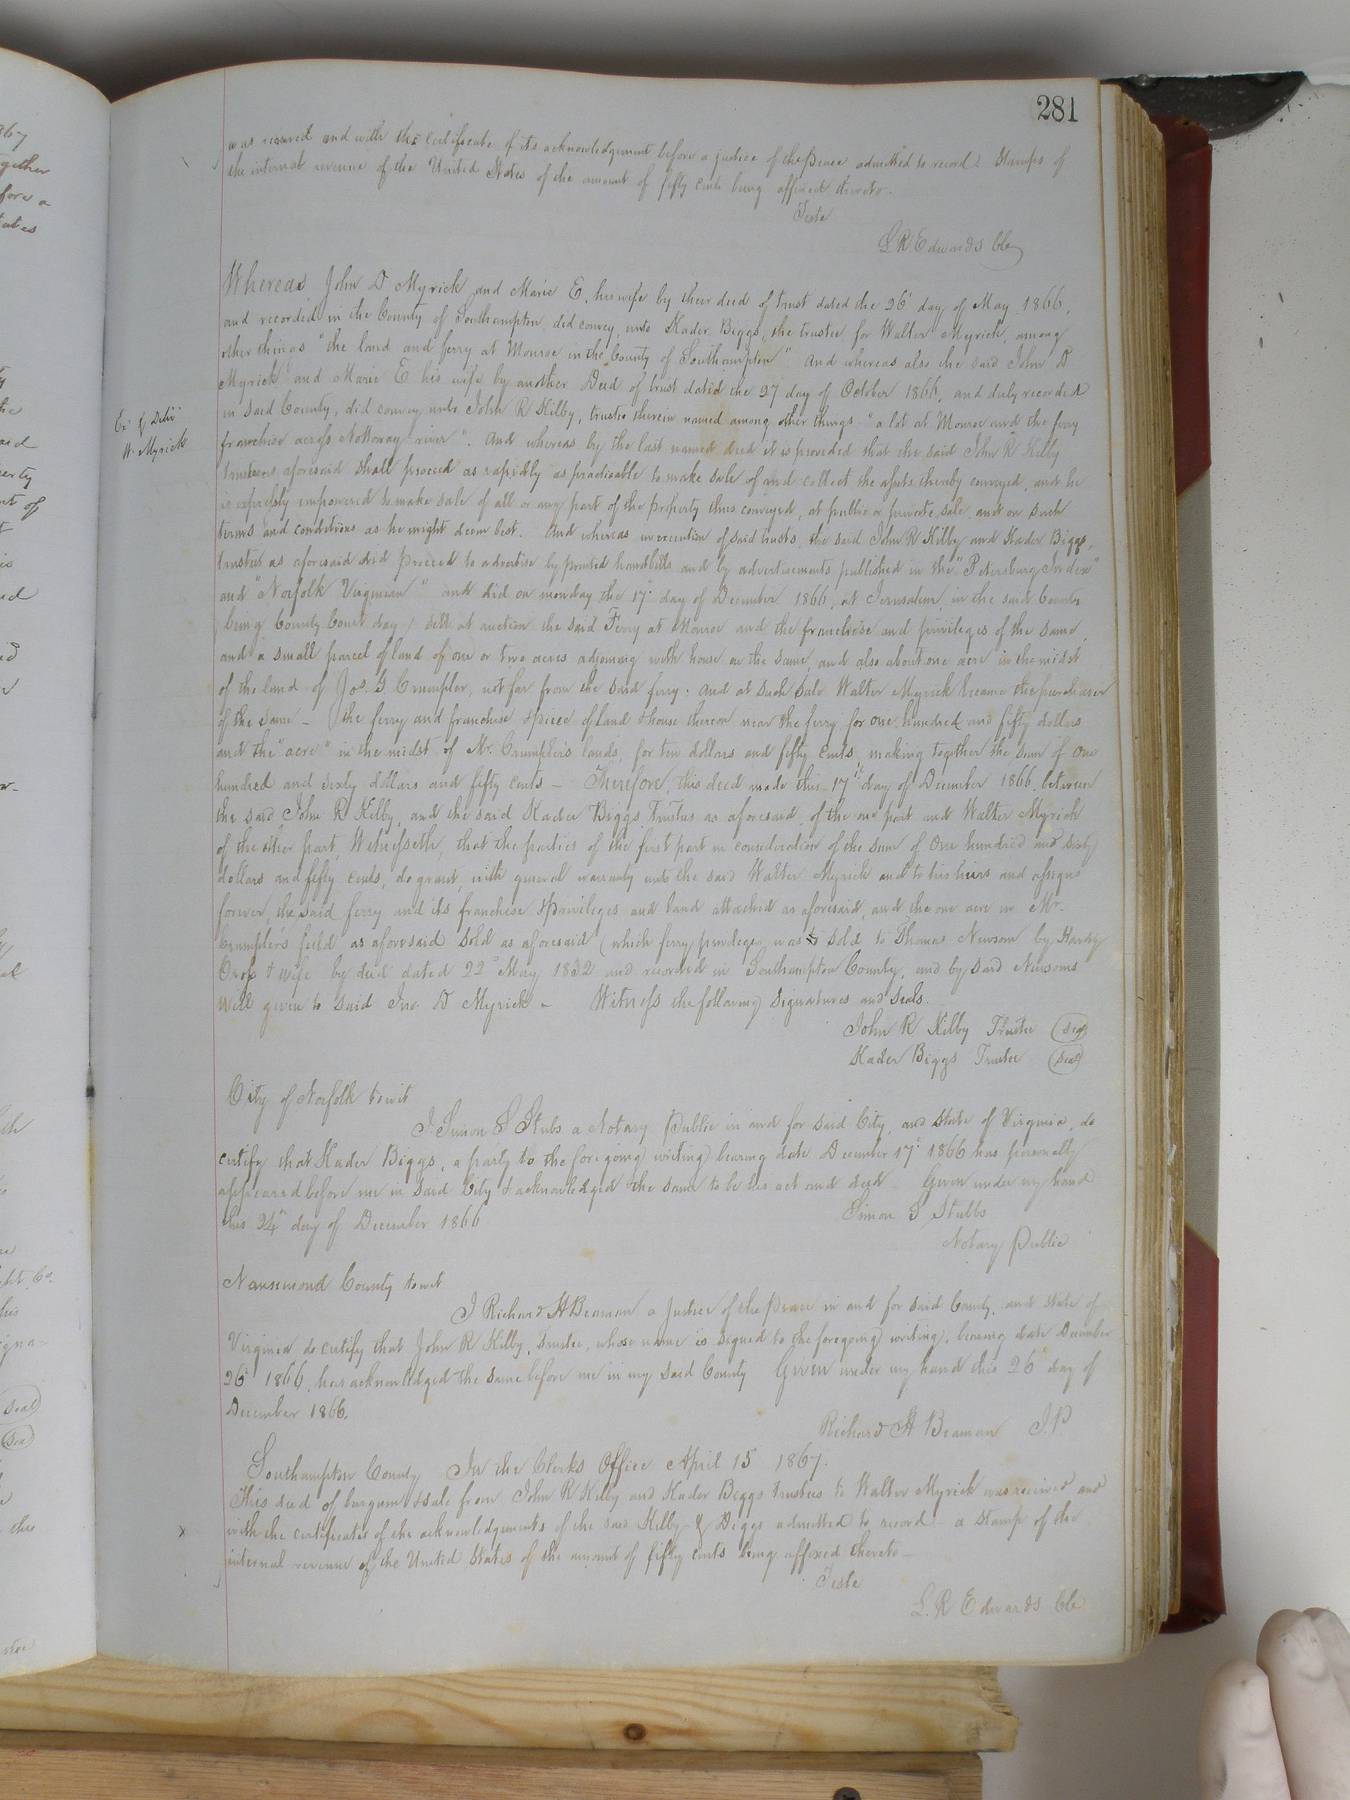 281
was received and with the Certificate of its acknowledgement before a justice of the Peace admitted to record. Stamps of
the internal revenue of the United States of the amount of fifty cents being affixed thereto.
Teste
L R Edwards Clk
Whereas John D Myrick and Marie E. his wife by their deed of trust dated the 26 day of May 1866,
and recorded in the County of Southampton did convey unto Kader Biggs, the trustee for Walter Myrick, among
other things "the land and ferry at Monroe in the County of Southampton" And whereas also the said John D
Myrick and Marie E his wife by another Deed of trust dated the 27 day of October 1866, and duly recorded
in said County, did convey unto John R Kilby, trustee therein named among other things "a lot at Monroe and the ferry
franchise across Nottoway river". And whereas by the last named deed it is provided that the said John R Kilby
Ex & Deliv
W. Myrick
trustee as aforesaid shall proceed as rapidly as practicable to make sale of and collect the assets thereby conveyed, and he
is expressly empowered to make sale of all or any part of the property thus conveyed, at public or private sale, and on such
terms and conditions as he might deem best. And whereas in execution of said trusts, the said John R Kilby and Kader Biggs,
trustees as aforesaid did proceed to advertise by printed handbills and by advertisements published in the "Petersburg Index"
and "Norfolk Virginian" and did on monday the 17 day of December 1866, at Jerusalem in the said County
(being County Court day) sell at auction the said Ferry at Monroe and the franchise and privileges of the same,
and a small parcel of land of one or two acres adjoining with house on the same, and also about one acre in the midst
of the land of Jos. G Crumpler, not far from the said ferry. And at such sale Walter Myrick became the purchaser
of the same - the ferry and franchise & piece of land & house thereon near the ferry for one hundred and fifty dollars
and the "acre" in the midst of Mr. Crumpler's lands, for ten dollars and fifty cents, making together the sum of one
hundred and sixty dollars and fifty cents - Therefore, this deed made this 17th day of December 1866 between
the said John R Kilby, and the said Kader Biggs Trustees as aforesaid, of the one part and Walter Myrick
of the other part, Witnesseth, that the parties of the first part in consideration of the sum of One hundred and sixty
dollars and fifty cents, do grant, with general warranty unto the said Walter Myrick and to his heirs and assigns
forever, the said ferry and its franchise & privileges and land attached as aforesaid, and the one acre in Mr.
Crumpler's field as aforesaid sold as aforesaid (which ferry privilege was sold to Thomas Newsom by Hardy
& wife by deed dated 22 May 1832 and recorded in Southampton County, and by said Newsoms
Will given to said Jno. D Myrick - Witness the following signatures and seals.
John R Kilby Trustee (Seal)
Kader Biggs Trustee (Seal)
City of Norfolk to wit
I Simon S Stubs a Notary Public in and for said City, and State of Virginia, do
certify that Kader Biggs, a party to the foregoing writing bearing date December 17 1866 has personally
appeared before me in said City & acknowledged the same to be his act and deed Given under my hand
this 24 day of December 1866
Simon S Stubbs
Notary Public
Nansemond County to wit
I Richard H Beaman a Justice of the Peace in and for said County, and State of
Virginia do certify that John R Kilby, trustee, whose name is signed to the foregoing writing, bearing date December
26 1866, has acknowledged the same before me in my said County Given under my hand this 26 day of
December 1866.
Richard H Beaman J.P
Southampton County In the Clerks Office April 15 1867.
This deed of bargain & sale from John R Kilby and Kader Biggs trustees to Walter Myrick was received and
with the certificates of the acknowledgements of the said Kilby & Biggs admitted to record - a stamp of the
internal revenue of the United States of the amount of fifty cents being affixed thereto -
Teste
L. R Edwards Clk